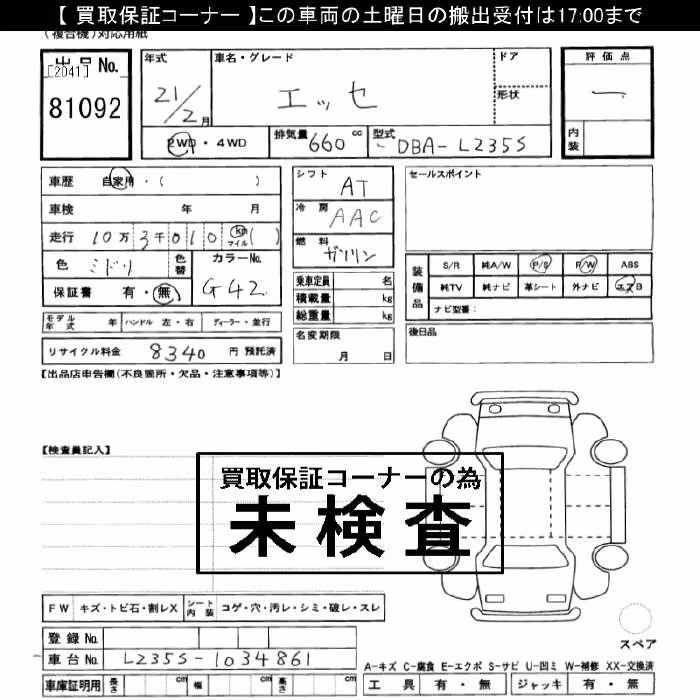 【 買取保証コーナー 】この車両の土曜日の搬出受付は17:00まで
(複合機)対応用紙
出品 No.
[2041]
81092
年式
21/2月
車名・グレード
エッセ
ドア
形状
評価点
一
内装
2WD・4WD
排気量 660 cc
型式 DBA-L235S
車歴 自家用・( )
車検 年 月
走行 10万3千010 km マイル ( )
色 ミドリ 色替
カラーNo. G42
保証書 有・無
モデル年式 年 ハンドル 左・右 ディーラー・並行
リサイクル料金 8340 円 預託済
シフト AT
冷房 AAC
燃料 ガソリン
乗車定員 名
積載量 kg
総重量 kg
名変期限 月 日
セールスポイント
装備品
S/R 純A/W P/S P/W ABS
純TV 純ナビ 革シート 外ナビ エアB
ナビ型番：
後日品
【出品店申告欄(不良箇所・欠品・注意事項等)】
【検査員記入】
買取保証コーナーの為
未検査
FW キズ・トビ石・割レX シート内装 コゲ・穴・汚レ・シミ・破レ・スレ
登録 No.
車台 No. L235S-1034861
車庫証明用 長さ cm 幅 cm 高さ cm
スペア
A-キズ C-腐食 E-エクボ S-サビ U-凹ミ W-補修 XX-交換済
工具 有・無 ジャッキ 有・無